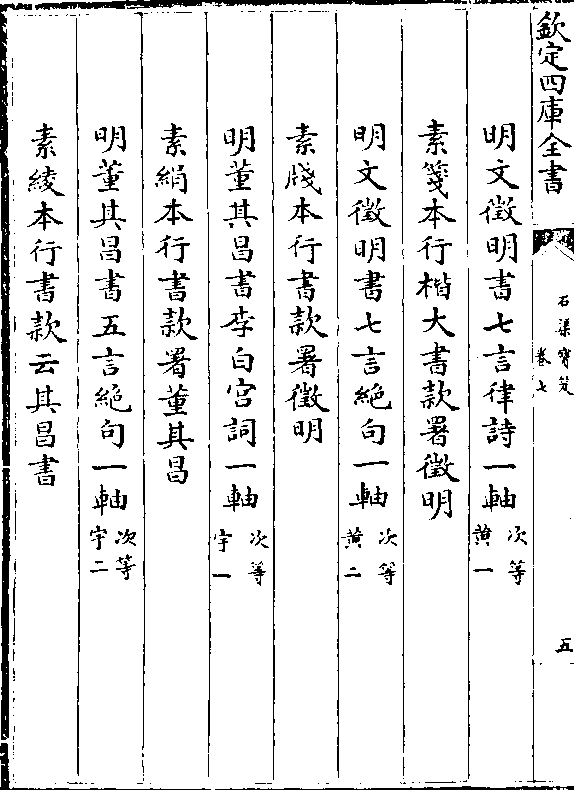 欽定四庫全書
石渠寶笈
卷七
五
明文徵明書七言律詩一軸 次等 黄一
素箋本行楷大書款署徵明
明文徵明書七言絶句一軸 次等 黄二
素牋本行書款署徵明
明董其昌書李白宫詞一軸 次等 宇一
素絹本行書款署董其昌
明董其昌書五言絶句一軸 次等 宇二
素綾本行書款云其昌書